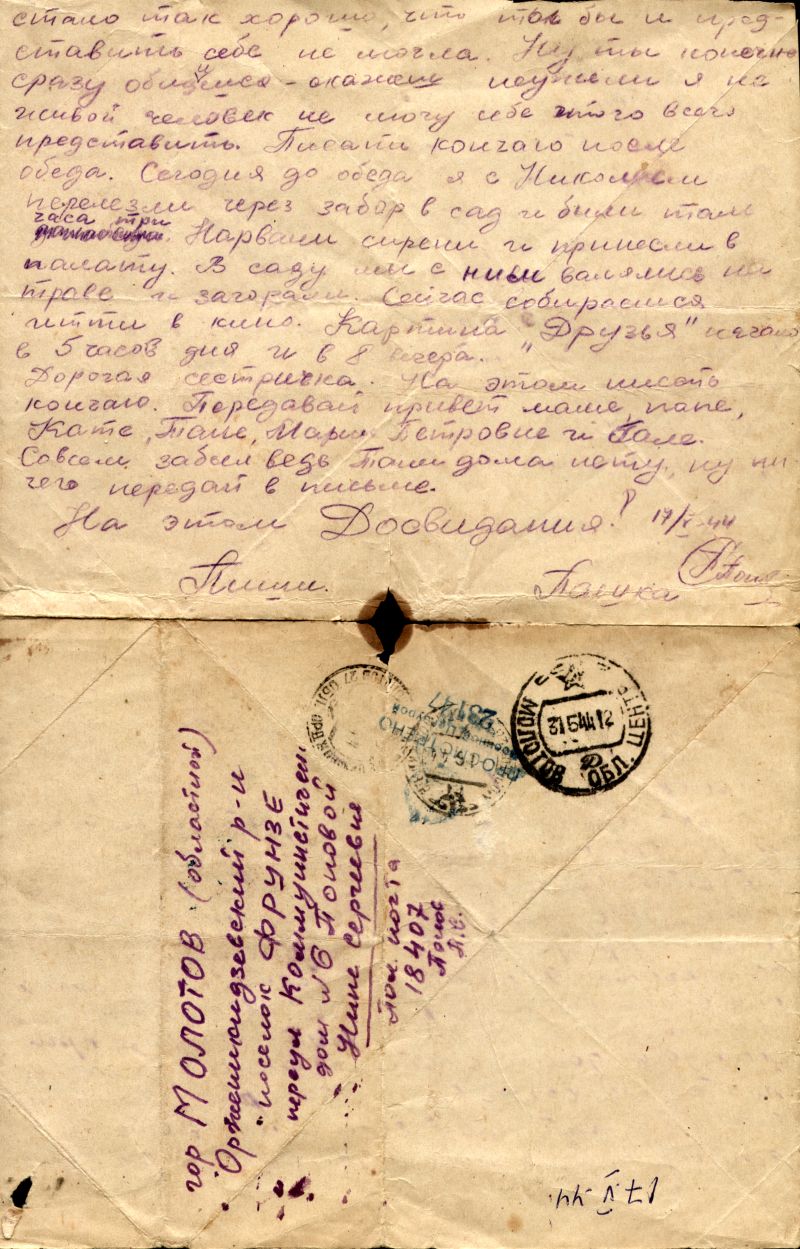 стало так хорошо, что так бы и пред-
ставить себе не могла. Ну ты конечно
сразу обидишся - скажеш неужели я не
живой человек не могу себе этого всего
представить. Писать кончаю после
обеда. Сегодня до обеда я с Николаем
перелезли через забор в сад и были там
часа три
Нарвали сирени и принесли в
палату. В саду мы с ним валялись на
траве и загорали. Сейчас собираемся
итти в кино. Картина "Друзья" начало
в 5 часов дня и в 8 вечера.
Дорогая сестричка. На этом писать
кончаю. Передавай привет маме, папе,
Кате, Тане, Марии Петровне и Гале.
Совсем забыл ведь Тани дома нету, ну ни
чего передай в письме.
На этом Досвидания! 17/V-44
Пиши. Пашка
гор МОЛОТОВ (областной)
Орженикидзевский р-н
поселок ФРУНЗЕ
переул Коммунистичес.
дом №6 Поповой
Нине Сергеевне
Пол. почта
18407
Попов
П.С.
ПРОСМОТРЕНО
Военной Цензурой
23147
МОЛОТОВ ОБЛ. ЦЕНТР
31 5 44 12
17 V 44